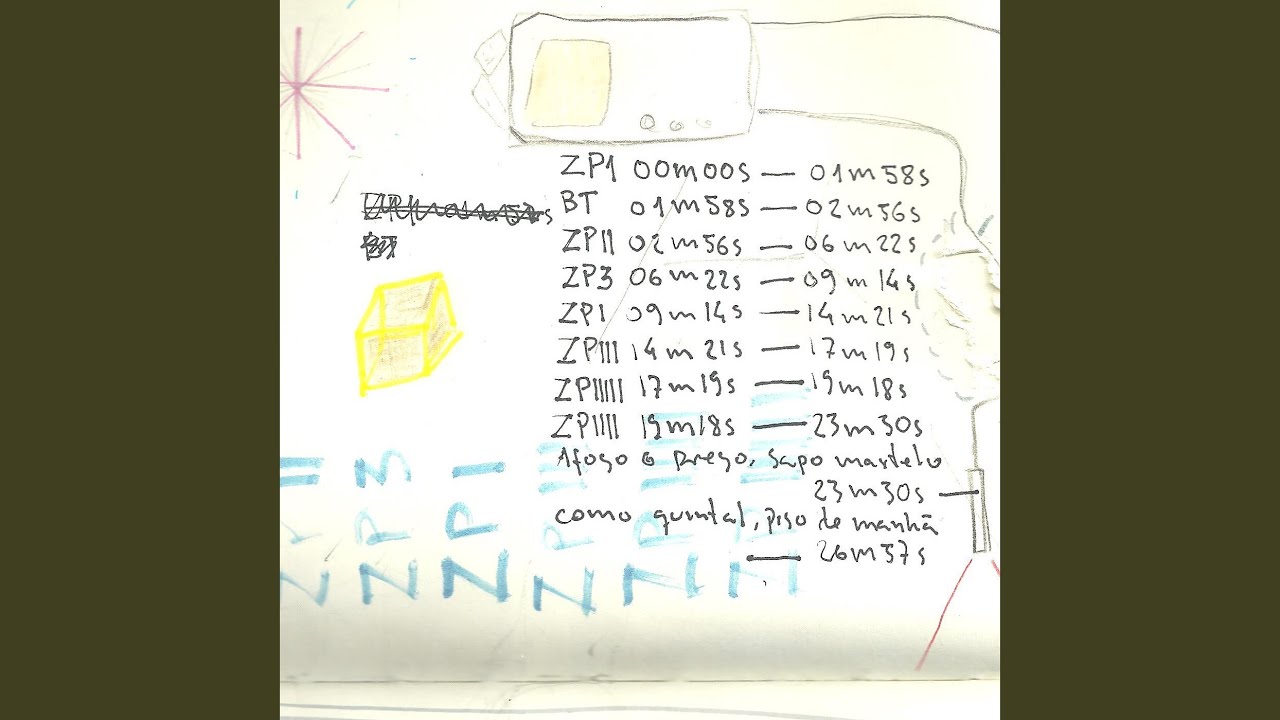 ZP1 00m00s — 01m58s
BT 01m58s — 02m56s
ZPII 02m56s — 06m22s
ZP3 06m22s — 09m14s
ZPI 09m14s — 14m21s
ZPIII 14m21s — 17m19s
ZPIIIII 17m19s — 19m18s
ZPIIII 19m18s — 23m30s
Afogo o prego, sapo martelo
23m30s —
como quintal, piso de manhã
— 26m57s
ZP II
ZP 3
ZP I
ZP III
ZP IIIII
ZP IIII